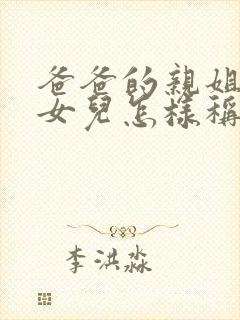 爸爸的親姐
女兒怎樣稱
李洪淼